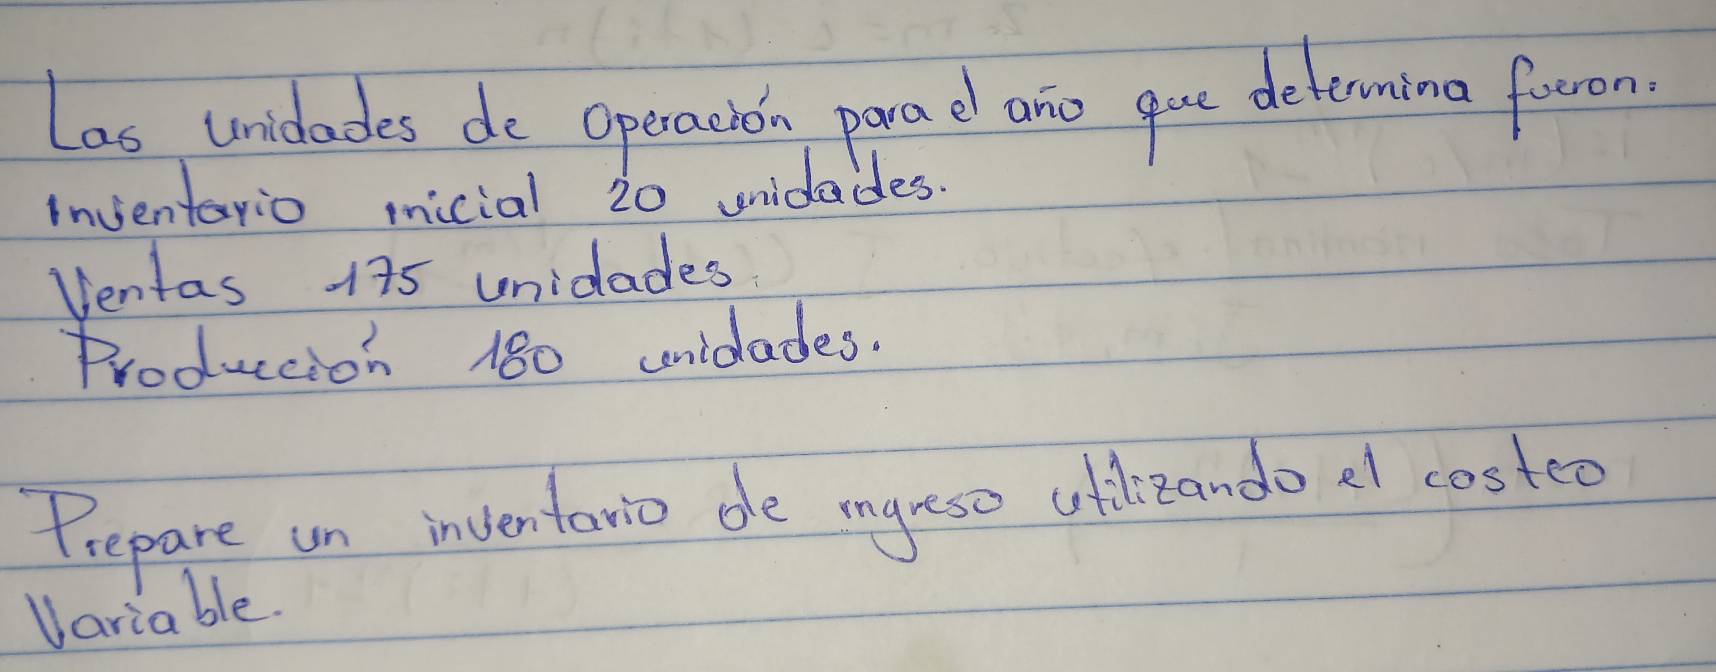 Las unidades de Operación para el año que determina fueron:
inventario inicial 20 unidades.
Ventas 175 unidades.
Producción 180 unidades.
Prepare un inventario de ingreso utilizando el costeo
Variable.